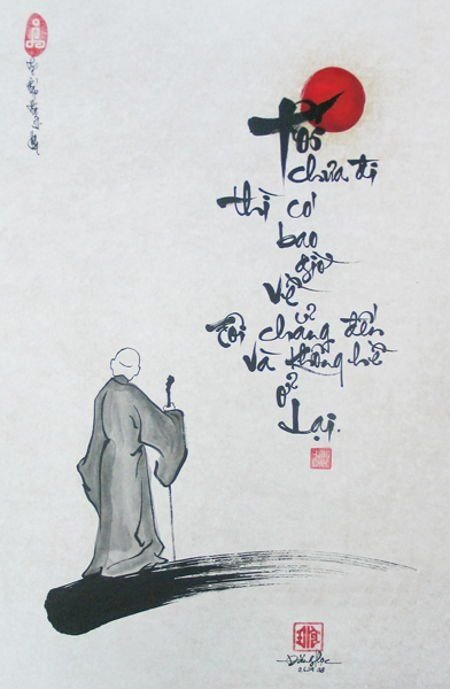 Tôi
chưa đi
thì có
bao
giờ
về
Tôi chẳng đến
và không hề
ở
Lại.